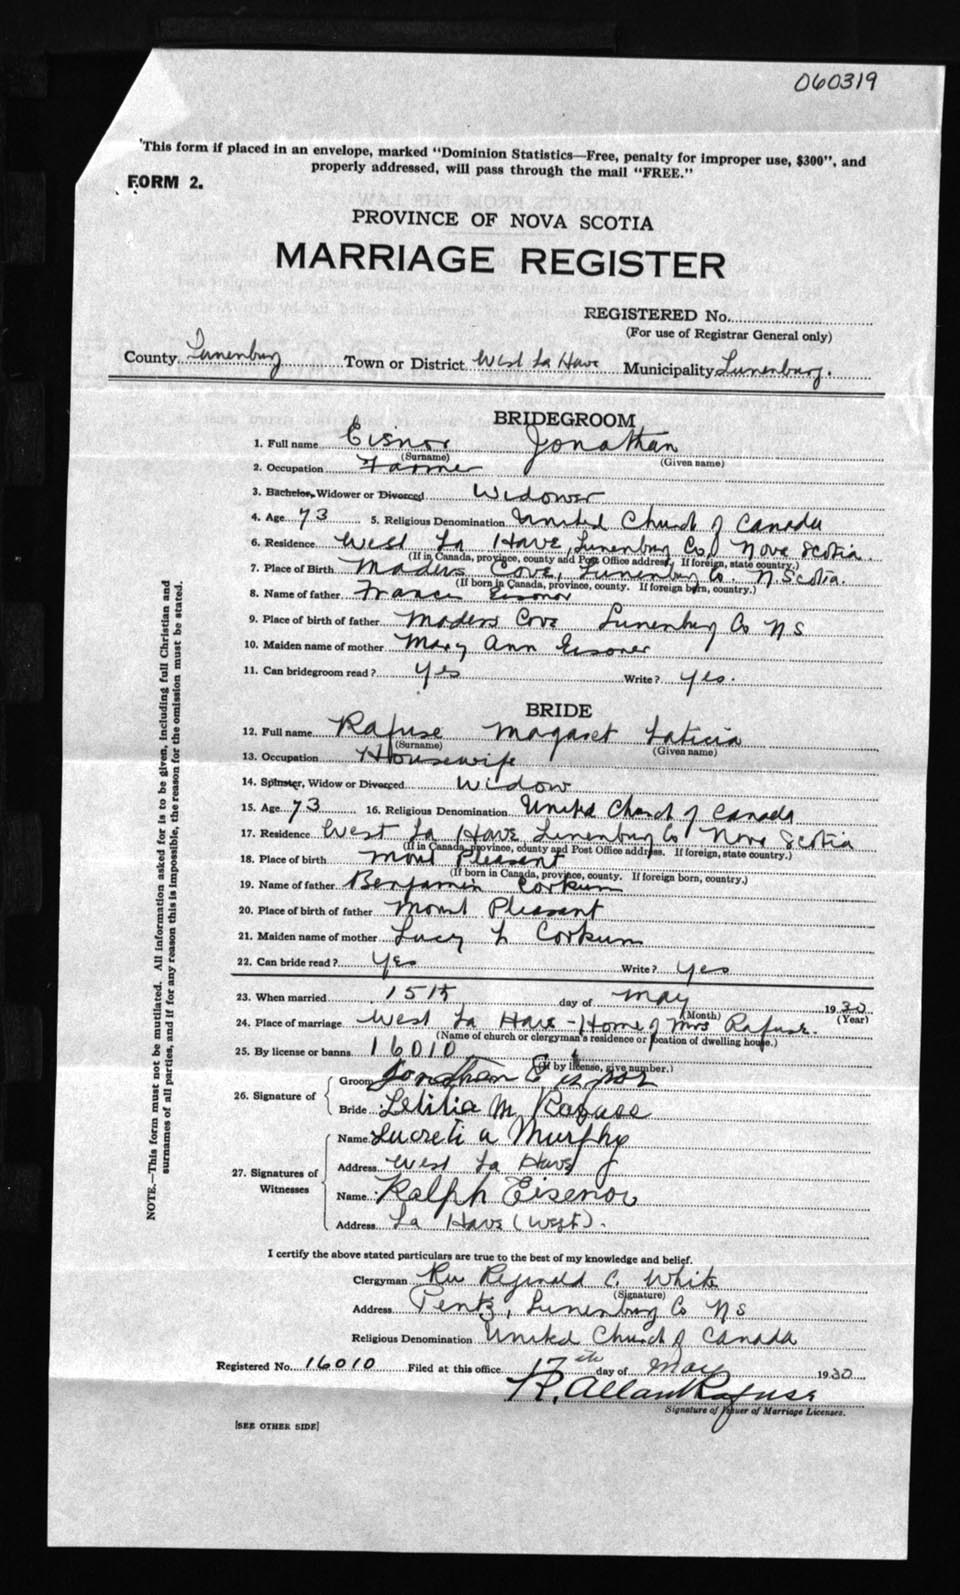 060319
"This form if placed in an envelope, marked "Dominion Statistics—Free, penalty for improper use, $300", and
properly addressed, will pass through the mail "FREE."
FORM 2.
PROVINCE OF NOVA SCOTIA
MARRIAGE REGISTER
REGISTERED No.
(For use of Registrar General only)
County Lunenburg Town or District West La Have Municipality Lunenburg.
BRIDEGROOM
1. Full name Eisnor Jonathan
(Surname) (Given name)
2. Occupation Farmer
3. Bachelor, Widower or Divorced Widower
4. Age 73 5. Religious Denomination United Church of Canada
6. Residence West La Have, Lunenburg Co, Nova Scotia
(If in Canada, province, county and Post Office address. If foreign, state country.)
7. Place of Birth Maders Cove, Lunenburg Co. N. Scotia.
(If born in Canada, province, county. If foreign born, country.)
8. Name of father Francis Eisonor
9. Place of birth of father Maders Cove Lunenburg Co NS
10. Maiden name of mother Mary Ann Eisoner
11. Can bridegroom read? Yes Write? Yes.
BRIDE
12. Full name Rafuse Magaret Laticia
(Surname) (Given name)
13. Occupation Housewife
14. Spinster, Widow or Divorced Widow
15. Age 73 16. Religious Denomination United Church of Canada
17. Residence West La Have, Lunenburg Co Nova Scotia
(If in Canada, province, county and Post Office address. If foreign, state country.)
18. Place of birth Mount Pleasant
(If born in Canada, province, county. If foreign born, country.)
19. Name of father Benjamin Corkum
20. Place of birth of father Mount Pleasant
21. Maiden name of mother Lucy L Corkum
22. Can bride read? Yes Write? Yes
23. When married 15th day of May 1930
(Month) (Year)
24. Place of marriage West La Have - Home of Mrs Rafuse.
(Name of church or clergyman's residence or location of dwelling house.)
25. By license or banns 16010
(If by license, give number.)
26. Signature of
Groom Jonathan Eisnor
Bride Letitia M Rafuse
27. Signatures of Witnesses
Name Lucreti a Murphy
Address West La Have
Name Ralph Eisenor
Address La Have (West).
I certify the above stated particulars are true to the best of my knowledge and belief.
Clergyman Rev Reginald C. White
(Signature)
Address Pentz, Lunenburg Co NS
Religious Denomination United Church of Canada
Registered No. 16010 Filed at this office 17th day of May 1930
R. Allan Rafuse
Signature of Issuer of Marriage Licenses.
[SEE OTHER SIDE]
NOTE.—This form must not be mutilated. All information asked for is to be given, including full Christian and
surnames of all parties, and if for any reason this is impossible, the reason for the omission must be stated.